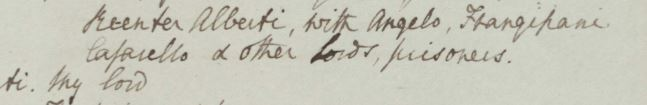 Reenter Alberti, with Angelo, Frangipani
Cafarello & other Lords, prisoners.
ti. My lord